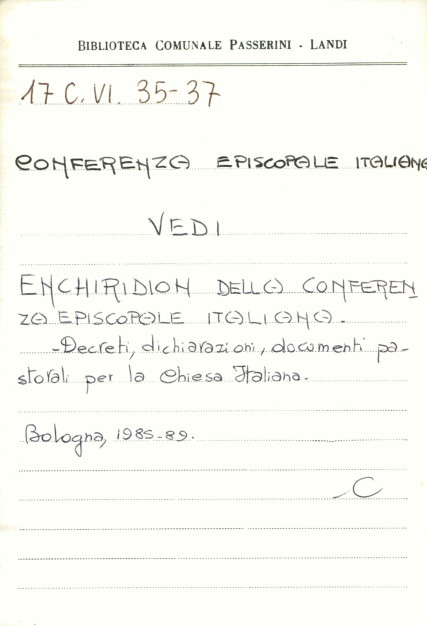 BIBLIOTECA COMUNALE PASSERINI - LANDI
17 C. VI. 35-37
CONFERENZA EPISCOPALE ITALIANA
VEDI
ENCHIRIDION DELLA CONFEREN
ZA EPISCOPALE ITALIANA.
-Decreti, dichiarazioni, documenti pa-
storali per la Chiesa Italiana.
Bologna, 1985-89.
C